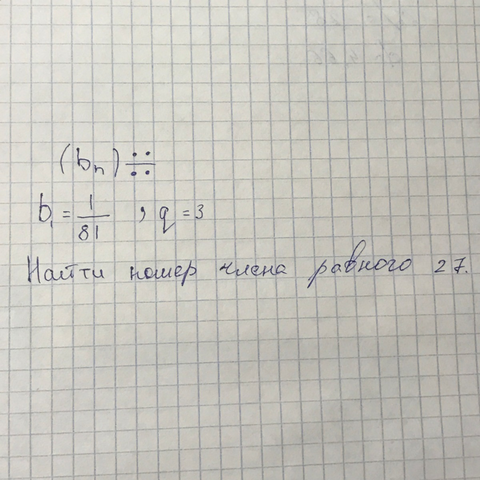 (bₙ) ∺
b₁ = 1/81 , q = 3
Найти номер члена равного 27.